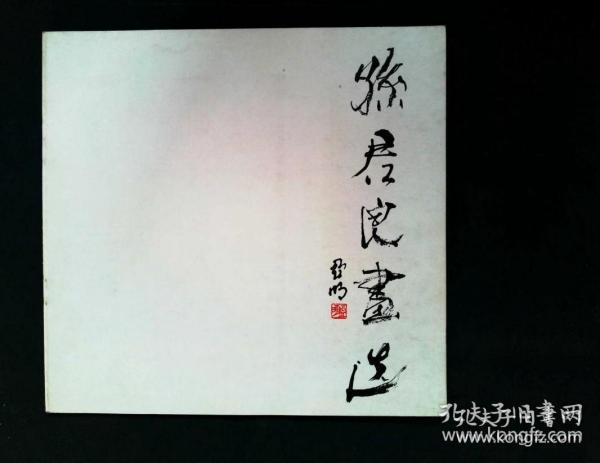 孫君良畫选
亞明
孔夫子旧書网
www.kongfz.com